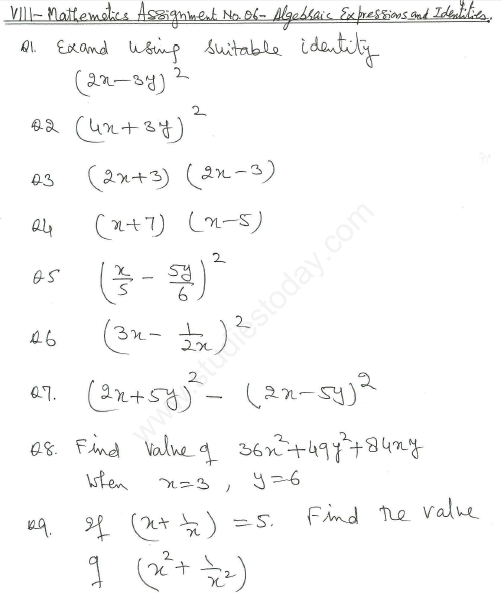 VIII - Mathemetics Assignment No. 06 - Algebraic Expressions and Identities.
Q1. Exand using suitable identity
(2x-3y)²
Q2 (4x+3y)²
Q3 (2x+3) (2x-3)
Q4 (x+7) (x-5)
Q5 (x/5 - 5y/6)²
Q6 (3x - 1/2x)²
Q7. (2x+5y)² - (2x-5y)²
Q8. Find value of 36x²+49y²+84xy
when x=3, y=6
Q9. If (x+1/x) = 5. Find the value
of (x²+1/x²)
www.studiestoday.com